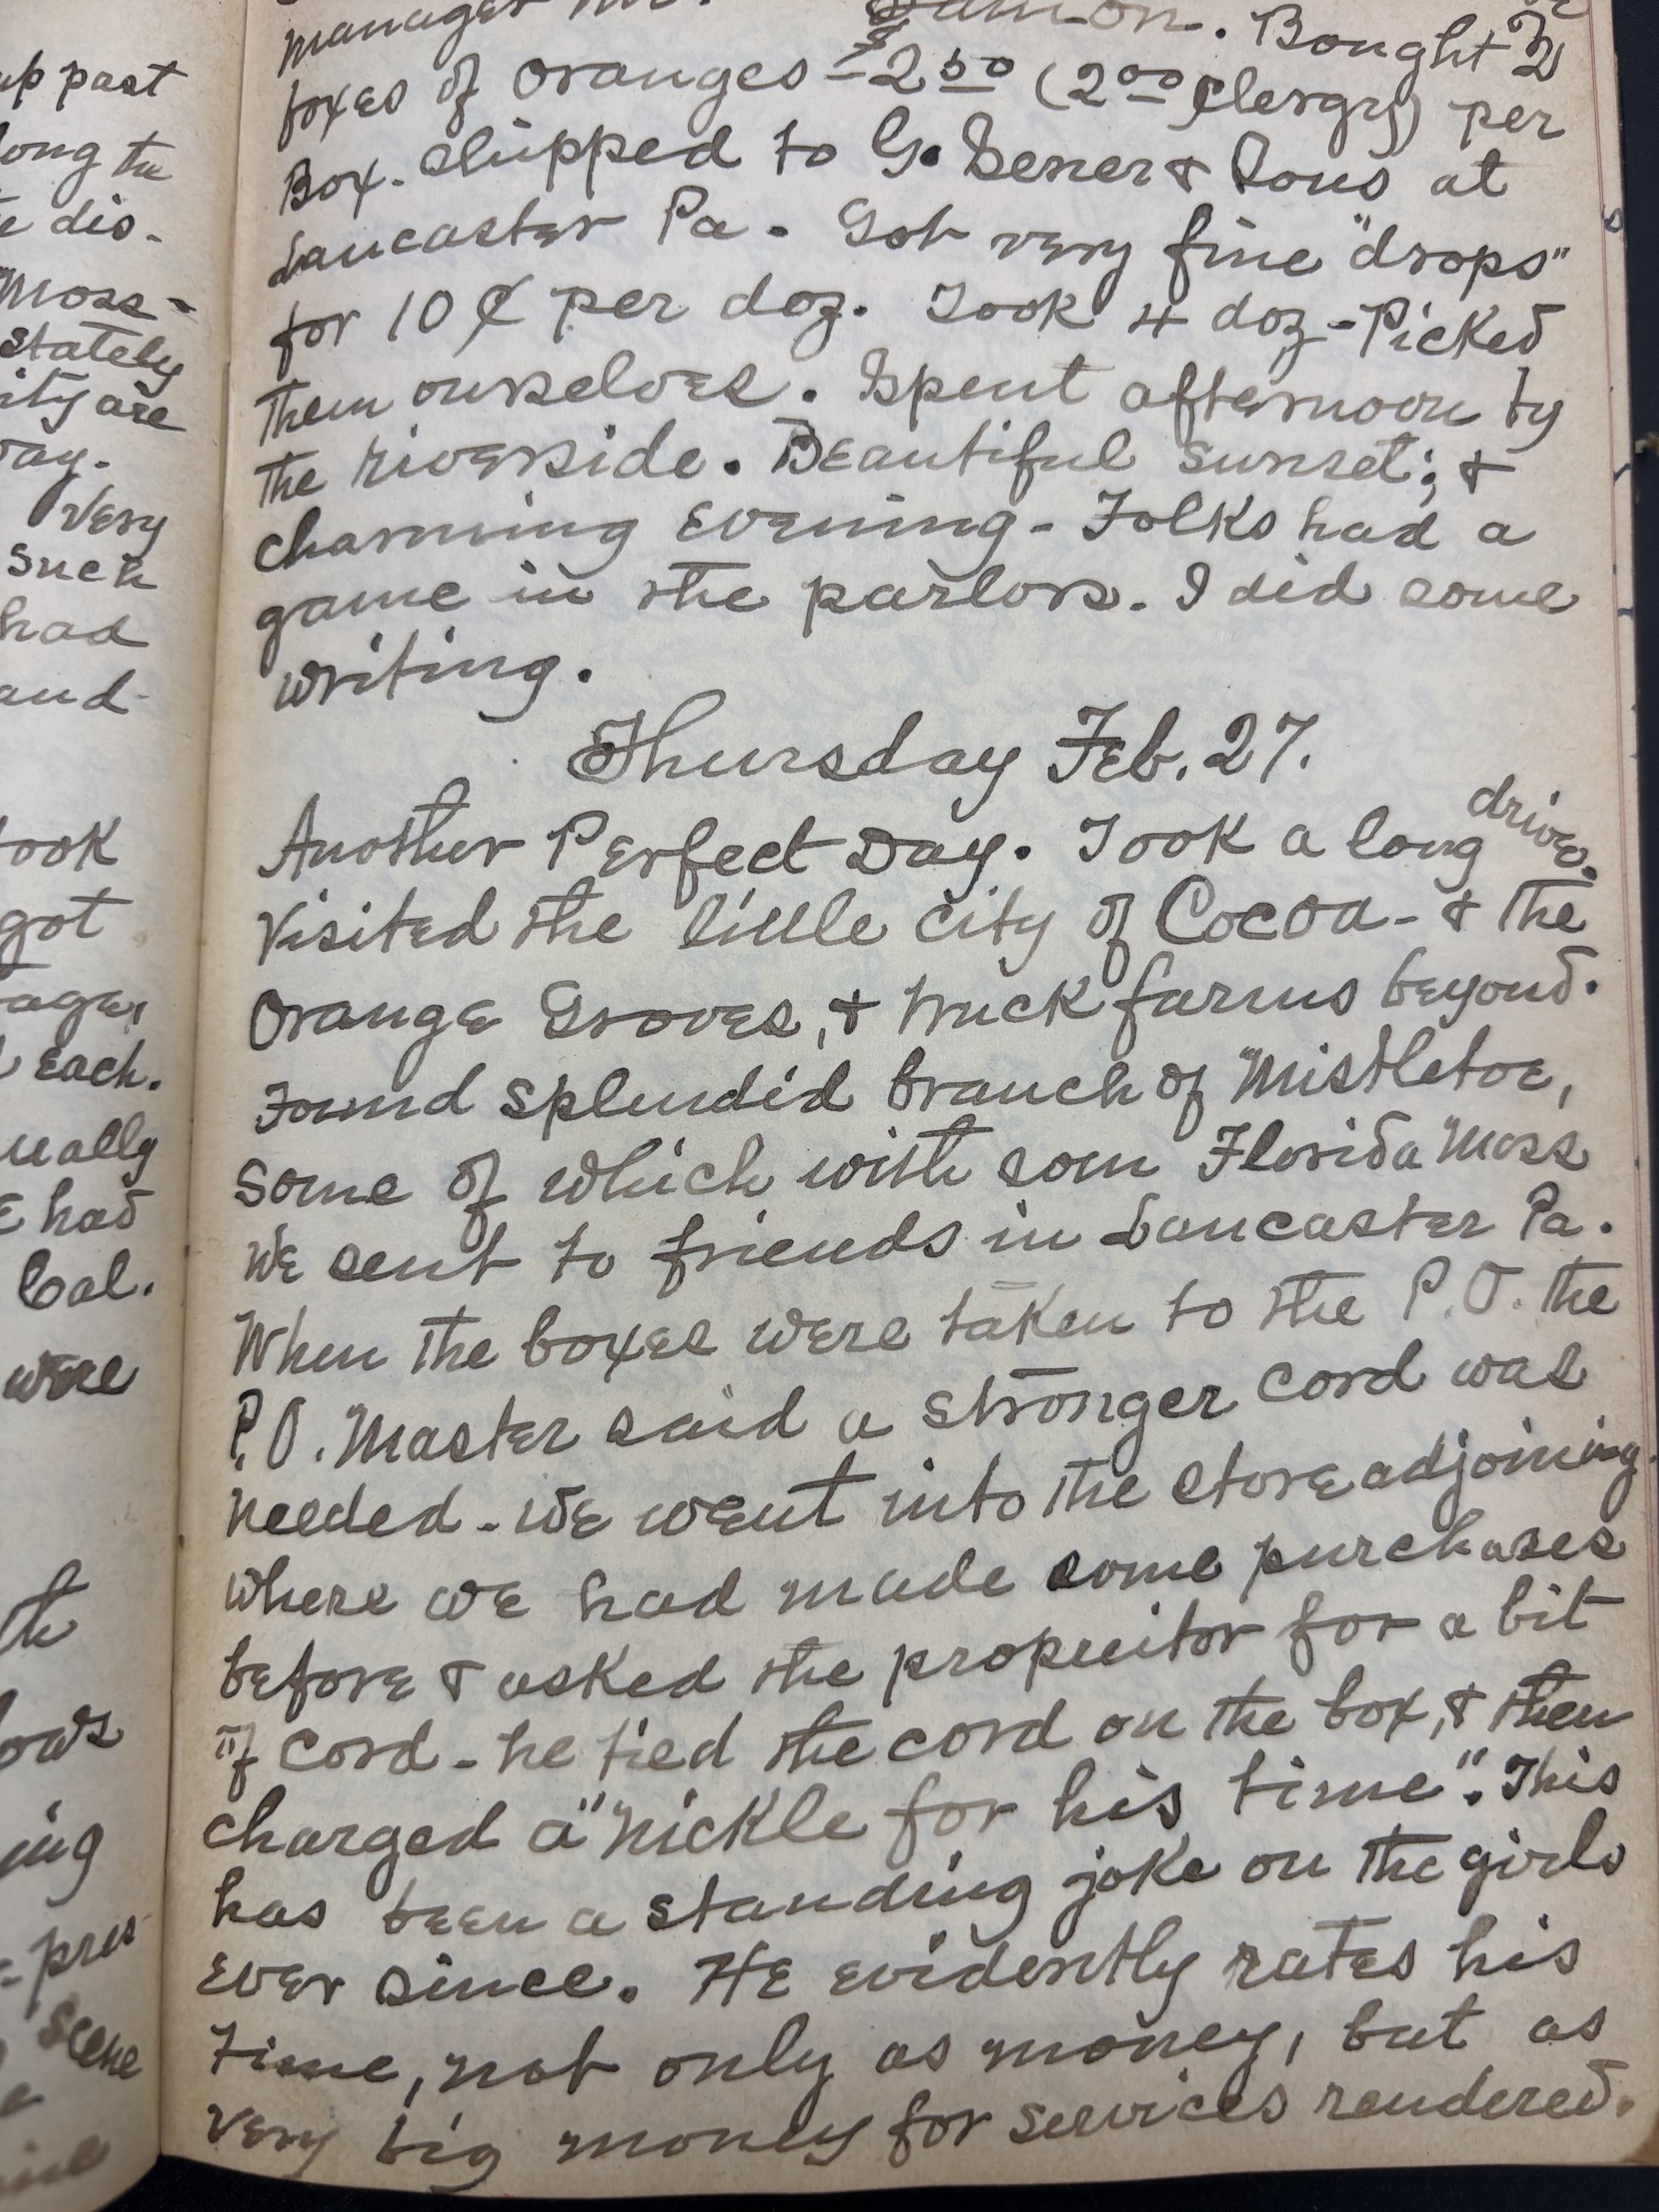 up past
ong the
e dis-
Moss-
stately
ity are
ay.
Very
such
had
and-
ook
got
age,
each.
ually
E had
Cal.
were
th
ows
ing
- pres-
scene
manager Mr. Bought 2
boxes of oranges - $2 50 (2 00 Clergy) per
Box. Shipped to G. Sener & Sons at
Lancaster Pa. Got very fine "drops"
for 10 ¢ per doz. Took 4 doz - Picked
them ourselves. Spent afternoon by
the riverside. Beautiful sunset; &
charming evening - Folks had a
game in the parlors. I did some
writing.
Thursday Feb. 27.
Another Perfect Day. Took a long drive.
Visited the little city of Cocoa - & the
Orange Groves, & truck farms beyond.
Found splendid branch of Mistletoe,
some of which with som Florida Moss
we sent to friends in Lancaster Pa.
When the boxes were taken to the P.O. the
P.O. Master said a stronger cord was
needed - we went into the store adjoining
where we had made some purchases
before & asked the propreitor for a bit
of cord - he tied the cord on the box, & then
charged a "nickle for his time". This
has been a standing joke on the girls
ever since. He evidently rates his
time, not only as money, but as
very big money for services rendered.